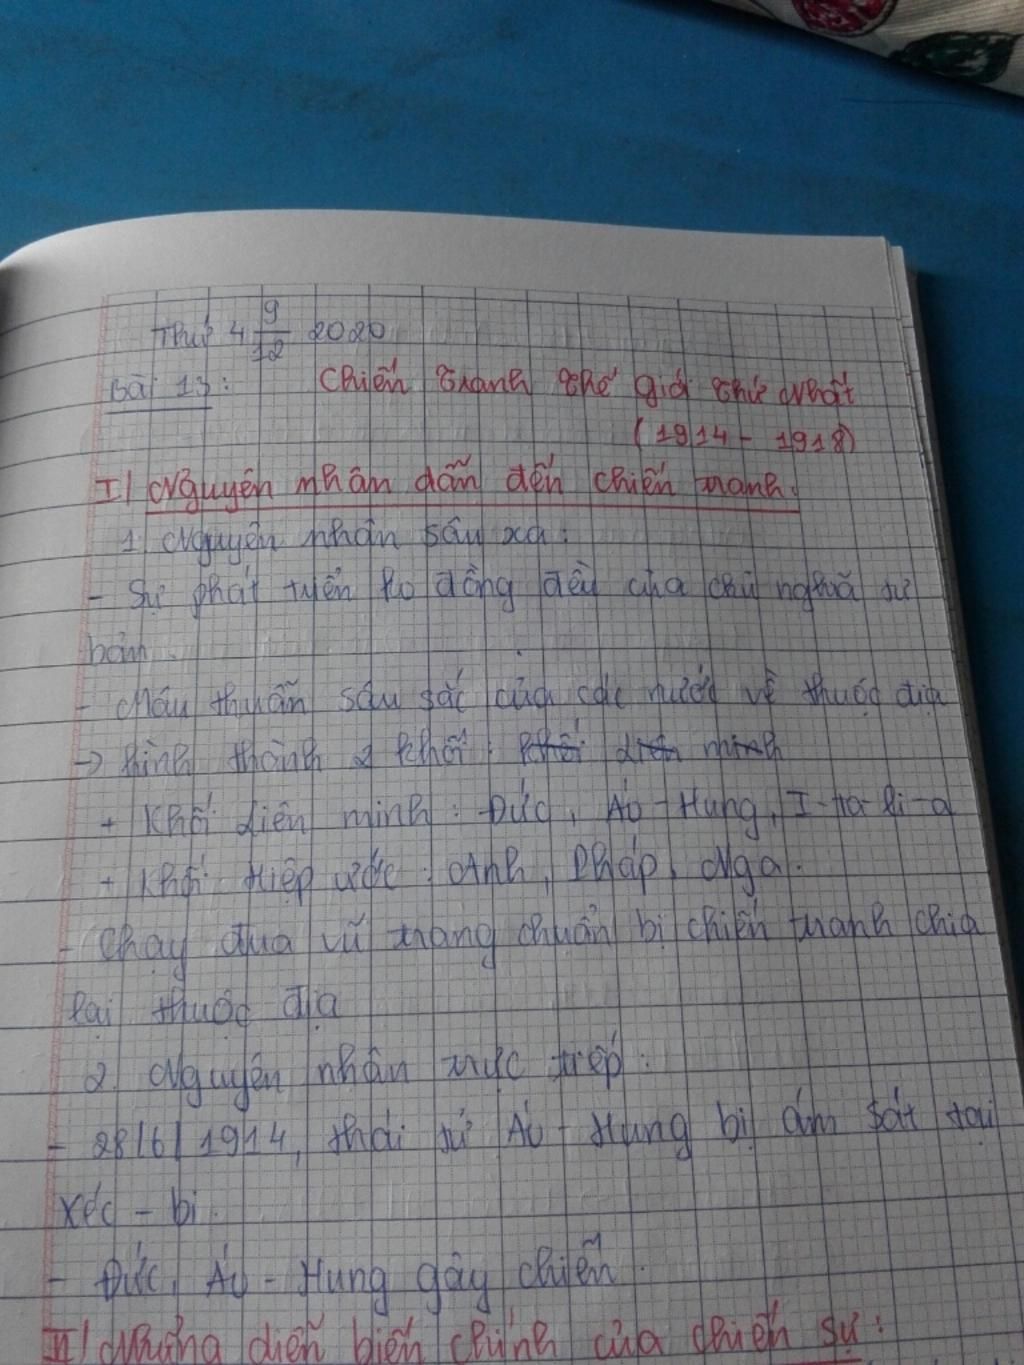 Thứ 4 9/12 2020
Bài 13: Chiến tranh thế giới thứ nhất
(1914 - 1918)
I/ Nguyên nhân dẫn đến chiến tranh.
1. Nguyên nhân sâu xa:
- Sự phát tyển ko đồng đều của chủ nghĩa tư
bản.
- Mâu thuẫn sâu sắc của các nước về thuộc địa
→ hình thành 2 khối: khối liên minh
+ Khối liên minh: Đức, Áo - Hung, I-ta-li-a
+ Khối Hiệp ước: Anh, Pháp, Nga.
- Chạy đua vũ trang chuẩn bị chiến tranh chia
lại thuộc địa
2. Nguyên nhân trực tiếp:
- 28/6/1914, thái tử Áo - Hung bị ám sát tại
Xéc - bi.
- Đức, Áo - Hung gây chiến.
II/ Những diễn biến chính của chiến sự: